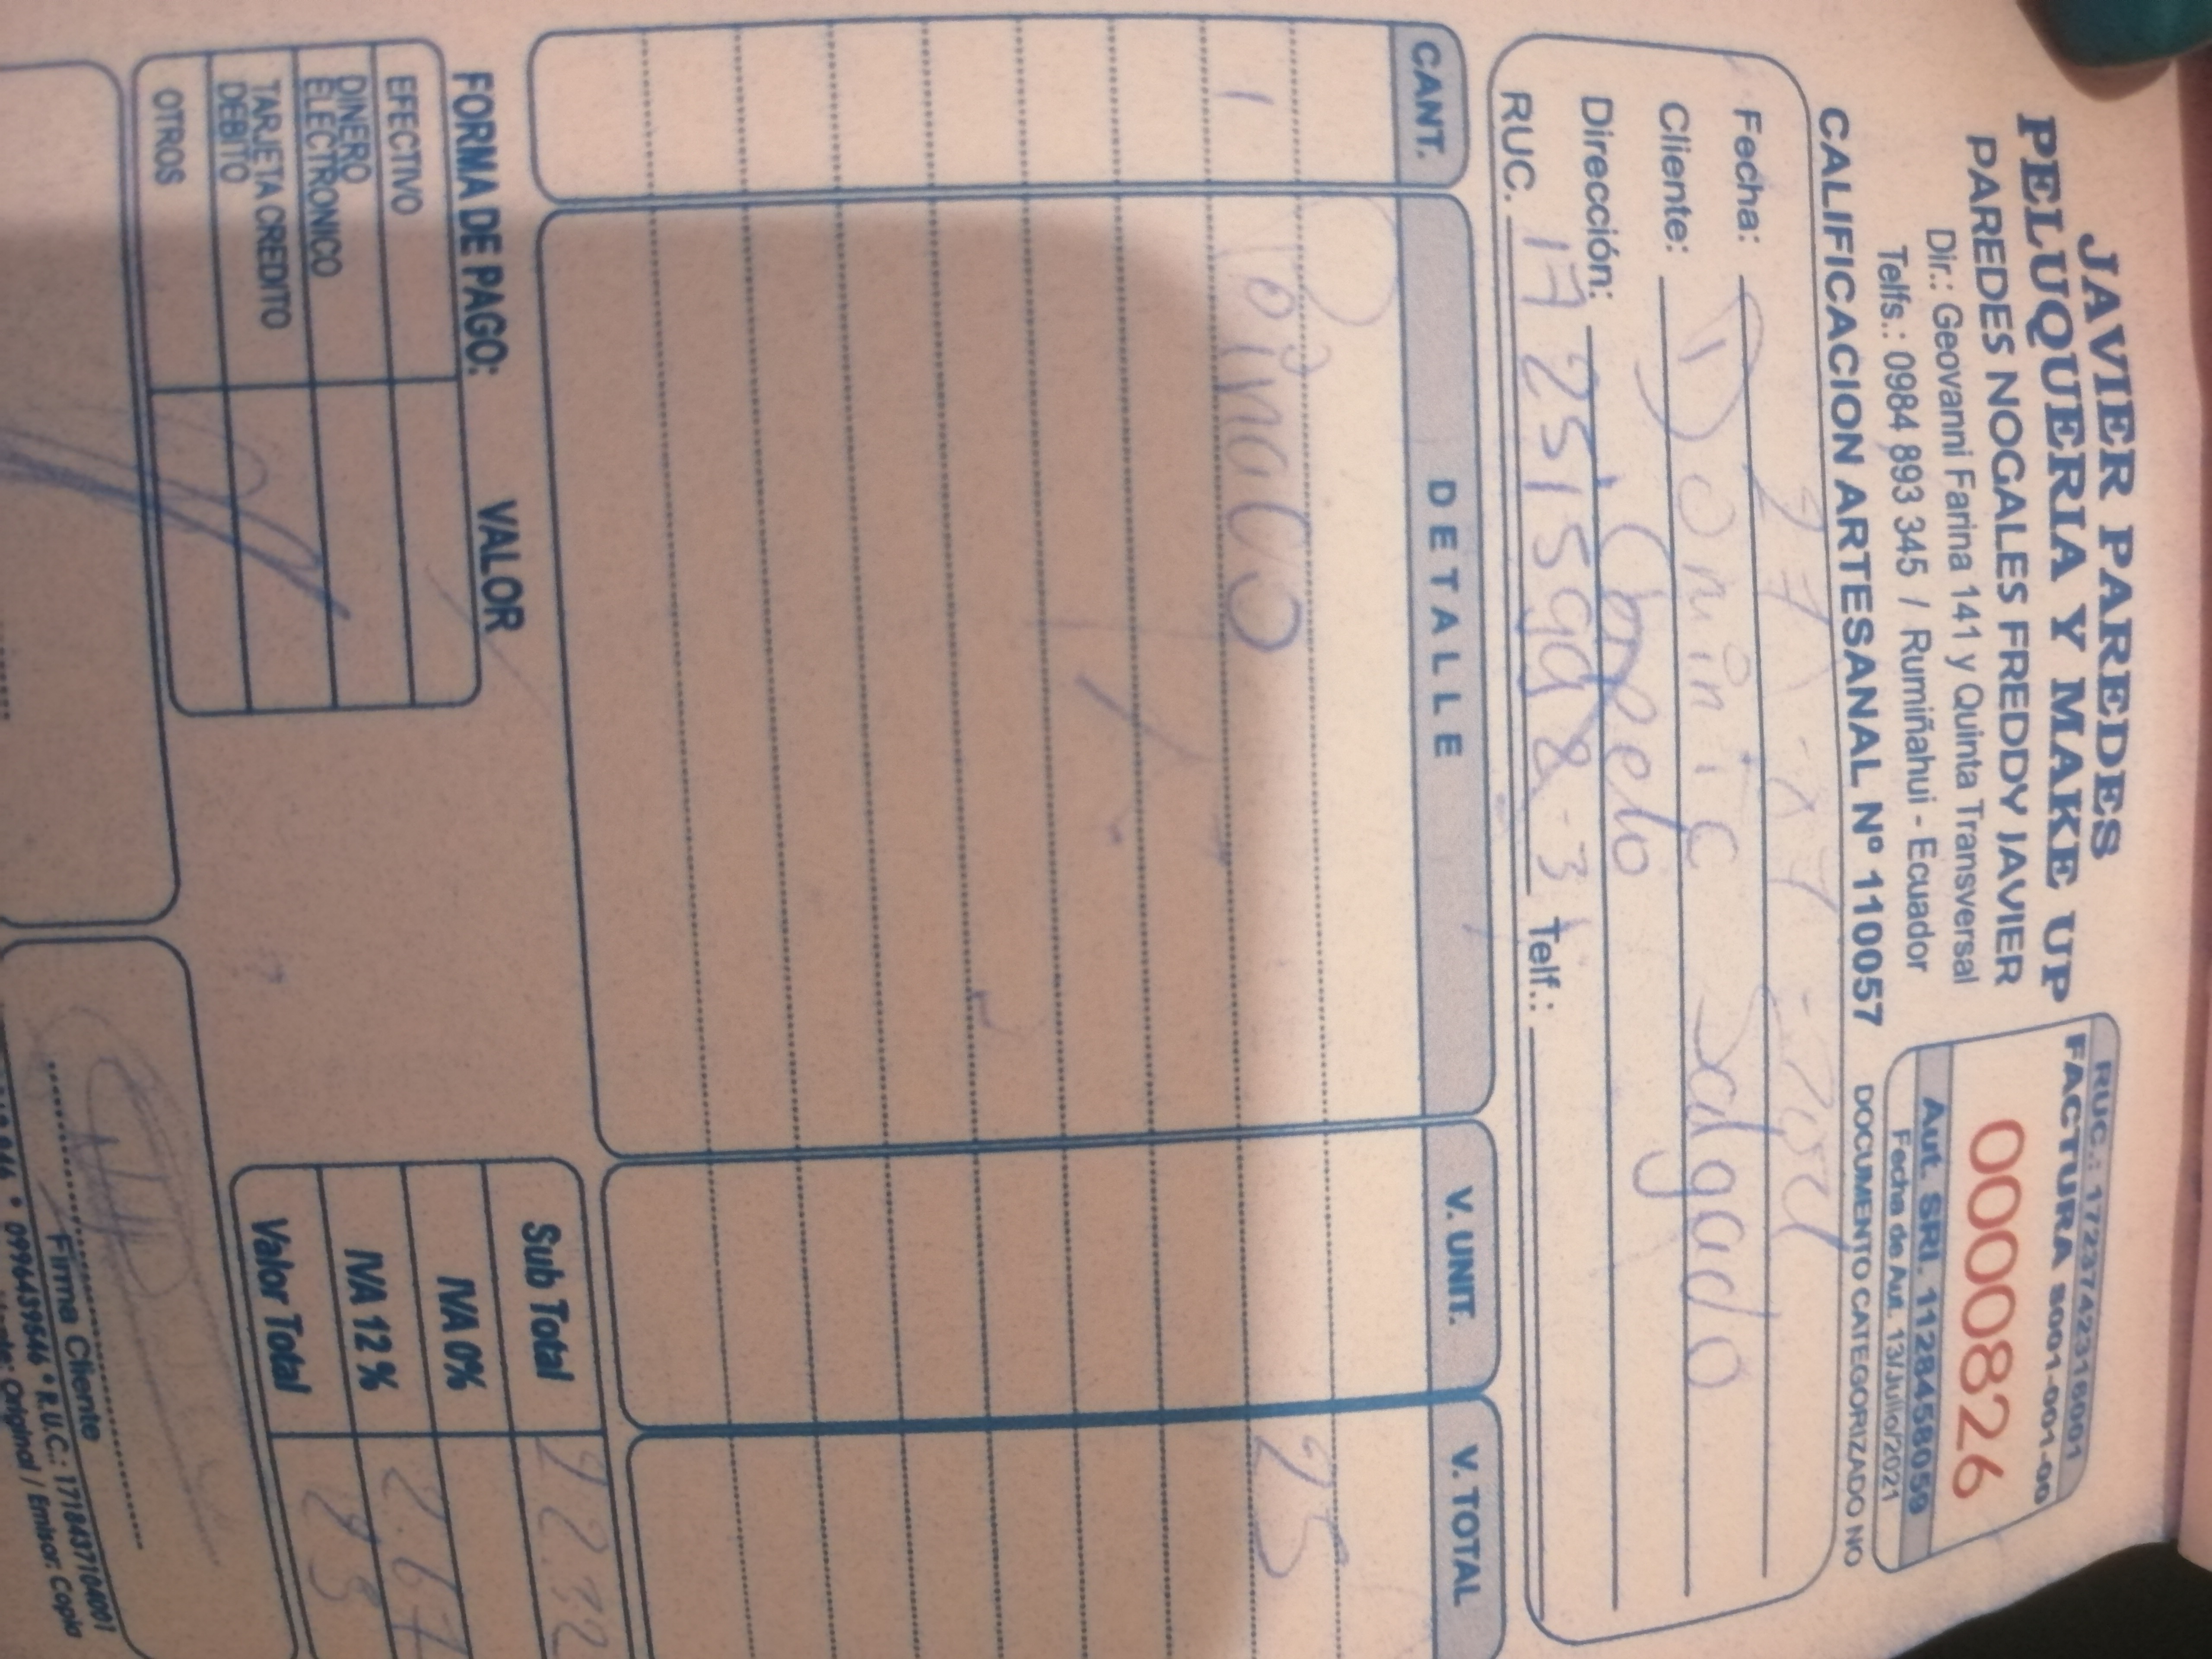 JAVIER PAREDES
PELUQUERIA Y MAKE UP
PAREDES NOGALES FREDDY JAVIER
Dir.: Geovanni Farina 141 y Quinta Transversal
Telfs.: 0984 893 345 / Rumiñahui - Ecuador
CALIFICACION ARTESANAL Nº 110057
RUC.: 1723742318001
FACTURA S001-001-00
0000826
Aut. SRI. 1128458059
Fecha de Aut. 13/Julio/2021
DOCUMENTO CATEGORIZADO NO
Fecha:
Cliente: Dominic Salgado
Dirección:
RUC. 172515998-3 Telf.:
CANT. DETALLE V. UNIT. V. TOTAL
1 Peinado 25
FORMA DE PAGO: VALOR
EFECTIVO
DINERO ELECTRONICO
TARJETA CREDITO DEBITO
OTROS
Sub Total 22.32
IVA 0%
IVA 12 % 2.67
Valor Total 25
Firma Cliente
0996459646 • R.U.C.: 1718437104001
Original / Emisor: Copia